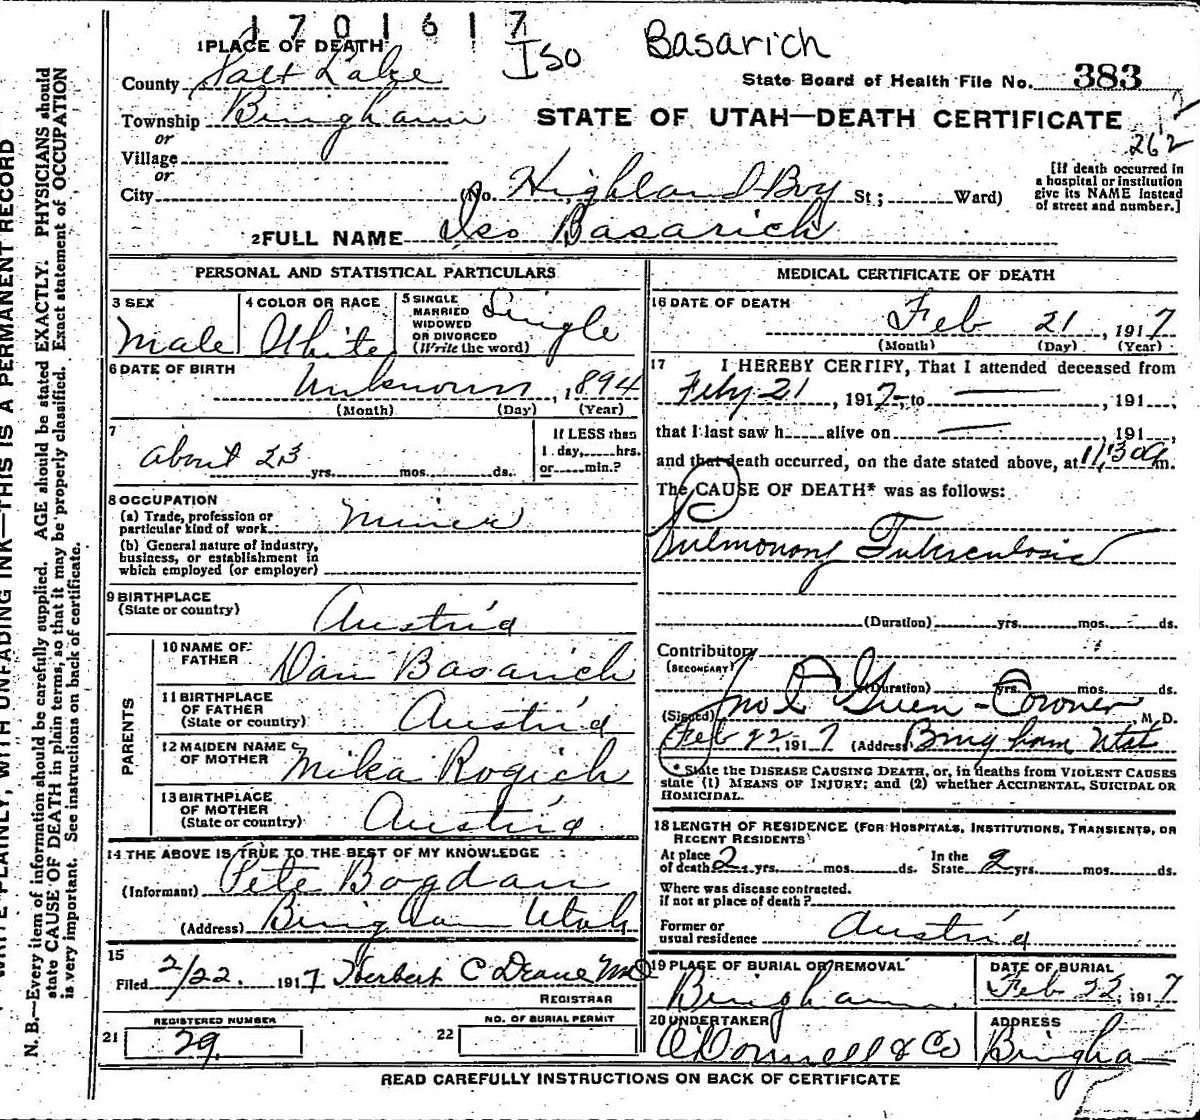 1701617
Iso Basarich
1 PLACE OF DEATH
State Board of Health File No. 383
County Salt Lake
Township Bingham
STATE OF UTAH—DEATH CERTIFICATE
or
Village
or
262
City (No. Highland Boy St; Ward)
[If death occurred in
a hospital or institution
give its NAME instead
of street and number.]
2 FULL NAME Iso Basarich
PERSONAL AND STATISTICAL PARTICULARS
3 SEX
Male
4 COLOR OR RACE
White
5 SINGLE
MARRIED
WIDOWED
OR DIVORCED
(Write the word)
Single
6 DATE OF BIRTH
Unknown, 1894
(Month) (Day) (Year)
7
about 23 yrs. mos. ds.
If LESS than
1 day, hrs.
or min.?
8 OCCUPATION
(a) Trade, profession or
particular kind of work Miner
(b) General nature of industry,
business, or establishment in
which employed (or employer)
9 BIRTHPLACE
(State or country) Austria
PARENTS
10 NAME OF
FATHER Dan Basarich
11 BIRTHPLACE
OF FATHER
(State or country) Austria
12 MAIDEN NAME
OF MOTHER Mika Rogich
13 BIRTHPLACE
OF MOTHER
(State or country) Austria
14 THE ABOVE IS TRUE TO THE BEST OF MY KNOWLEDGE
(Informant) Pete Bogdan
(Address) Bingham Utah
15
Filed 2/22. 1917 Herbert C Deane MD
REGISTRAR
REGISTERED NUMBER
21 29.
NO. OF BURIAL PERMIT
22
MEDICAL CERTIFICATE OF DEATH
16 DATE OF DEATH
Feb 21, 1917
(Month) (Day) (Year)
17 I HEREBY CERTIFY, That I attended deceased from
Feby 21, 1917, to —, 191
that I last saw h alive on —, 191
and that death occurred, on the date stated above, at 11:30 a m.
The CAUSE OF DEATH* was as follows:
Pulmonary Tuberculosis
(Duration) yrs. mos. ds.
Contributory
(SECONDARY)
(Duration) yrs. mos. ds.
(Signed) Jno E Green - Coroner M. D.
Feb 22, 1917 (Address) Bingham Utah
* State the DISEASE CAUSING DEATH, or, in deaths from VIOLENT CAUSES
state (1) MEANS OF INJURY; and (2) whether ACCIDENTAL, SUICIDAL OR
HOMICIDAL.
18 LENGTH OF RESIDENCE (FOR HOSPITALS, INSTITUTIONS, TRANSIENTS, OR
RECENT RESIDENTS
At place
of death 2 yrs. mos. ds.
In the
State 2 yrs. mos. ds.
Where was disease contracted.
if not at place of death?
Former or
usual residence Austria
19 PLACE OF BURIAL OR REMOVAL
Bingham
DATE OF BURIAL
Feb 22, 1917
20 UNDERTAKER
O'Donnell & Co
ADDRESS
Bingha
READ CAREFULLY INSTRUCTIONS ON BACK OF CERTIFICATE
WRITE PLAINLY, WITH UNFADING INK—THIS IS A PERMANENT RECORD
N. B.—Every item of information should be carefully supplied. AGE should be stated EXACTLY. PHYSICIANS should
state CAUSE OF DEATH in plain terms, so that it may be properly classified. Exact statement of OCCUPATION
is very important. See instructions on back of certificate.